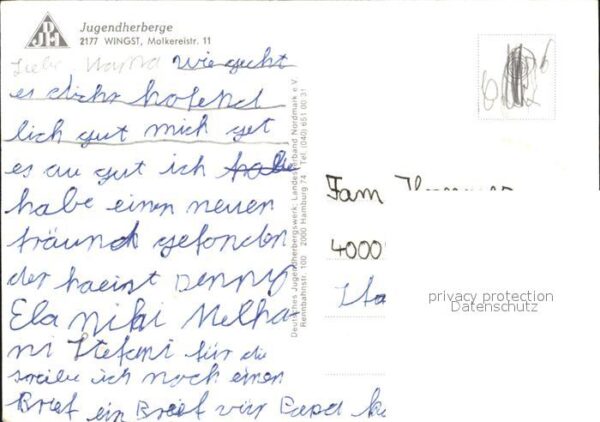 DJH
Jugendherberge
2177 WINGST, Molkereistr. 11
Liebe wie geht
es dich hofend
lich gut mich get
es au gut ich habe
habe einen neuen
fräund gefonden
der haeist Denny
Ela niki Melha-
ni Stefeni für die
sreibe ich noch einen
Brief ein Brief vür
Deutsches Jugendherbergswerk, Landesverband Nordmark e.V.
Rennbahnstr. 100 2000 Hamburg 74 Tel. (040) 651 00 31
Fam
4000
privacy protection
Datenschutz